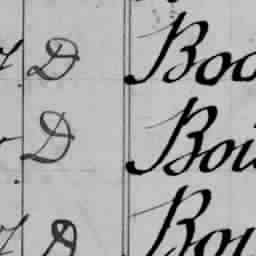 D Boo
D Boi
D Bou